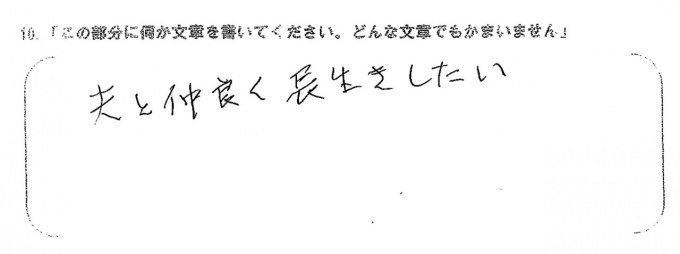 10.「この部分に何か文章を書いてください。どんな文章でもかまいません」
夫と仲良く長生きしたい